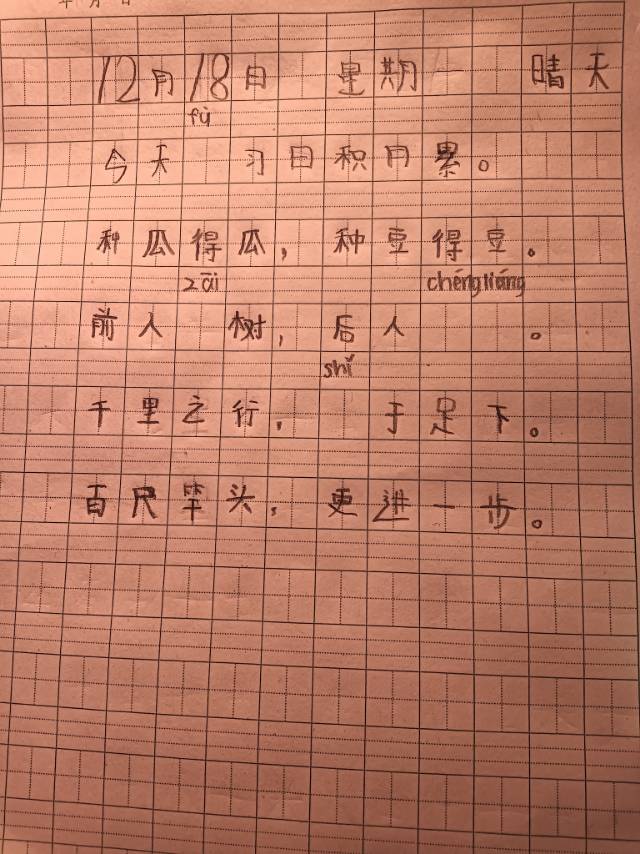 12月18日 星期一 晴天
fù
今天 习日积月累。
种瓜得瓜，种豆得豆。
zāi chéngliáng
前人 树，后人 。
shǐ
千里之行， 于足下。
百尺竿头，更進一步。